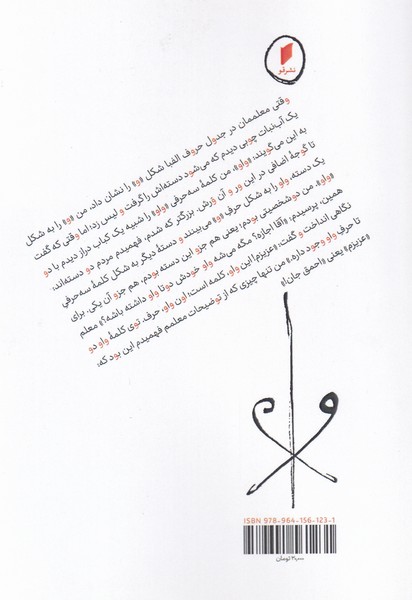 نشر نو
وقتی معلممان در جدول حروف الفبا شکل «و» را نشان داد، من «و» را به شکل
یک آب‌نبات چوبی دیدم که می‌شود دسته‌اش را گرفت و لیس زد؛ اما وقتی که گفت
به این می‌گویند: «واو»، من کلمهٔ سه‌حرفی «واو» را شبیه یک کباب دراز دیدم با دو
تا گوجهٔ اضافی در این ور و آن ورش. بزرگتر که شدم، فهمیدم مردم دو دسته‌اند:
یک دسته، واو را به شکل حرف «و» می‌بینند و دستهٔ دیگر به شکل کلمهٔ سه‌حرفیِ
«واو». من دو شخصیتی بودم؛ یعنی هم جزو این دسته بودم، هم جزو آن یکی. برای
همین، پرسیدم: «آقا اجازه؟ مگه می‌شه واو خودش دو تا واو داشته باشه؟» معلم
نگاهی انداخت و گفت: «عزیزم! این واو، کلمه است؛ اون واو، حرف. توی کلمهٔ واو دو
تا حرفِ واو وجود داره.» من تنها چیزی که از توضیحات معلمم فهمیدم این بود که:
«عزیزم» یعنی «احمق جان!»
ISBN 978-964-156-123-1
تومان